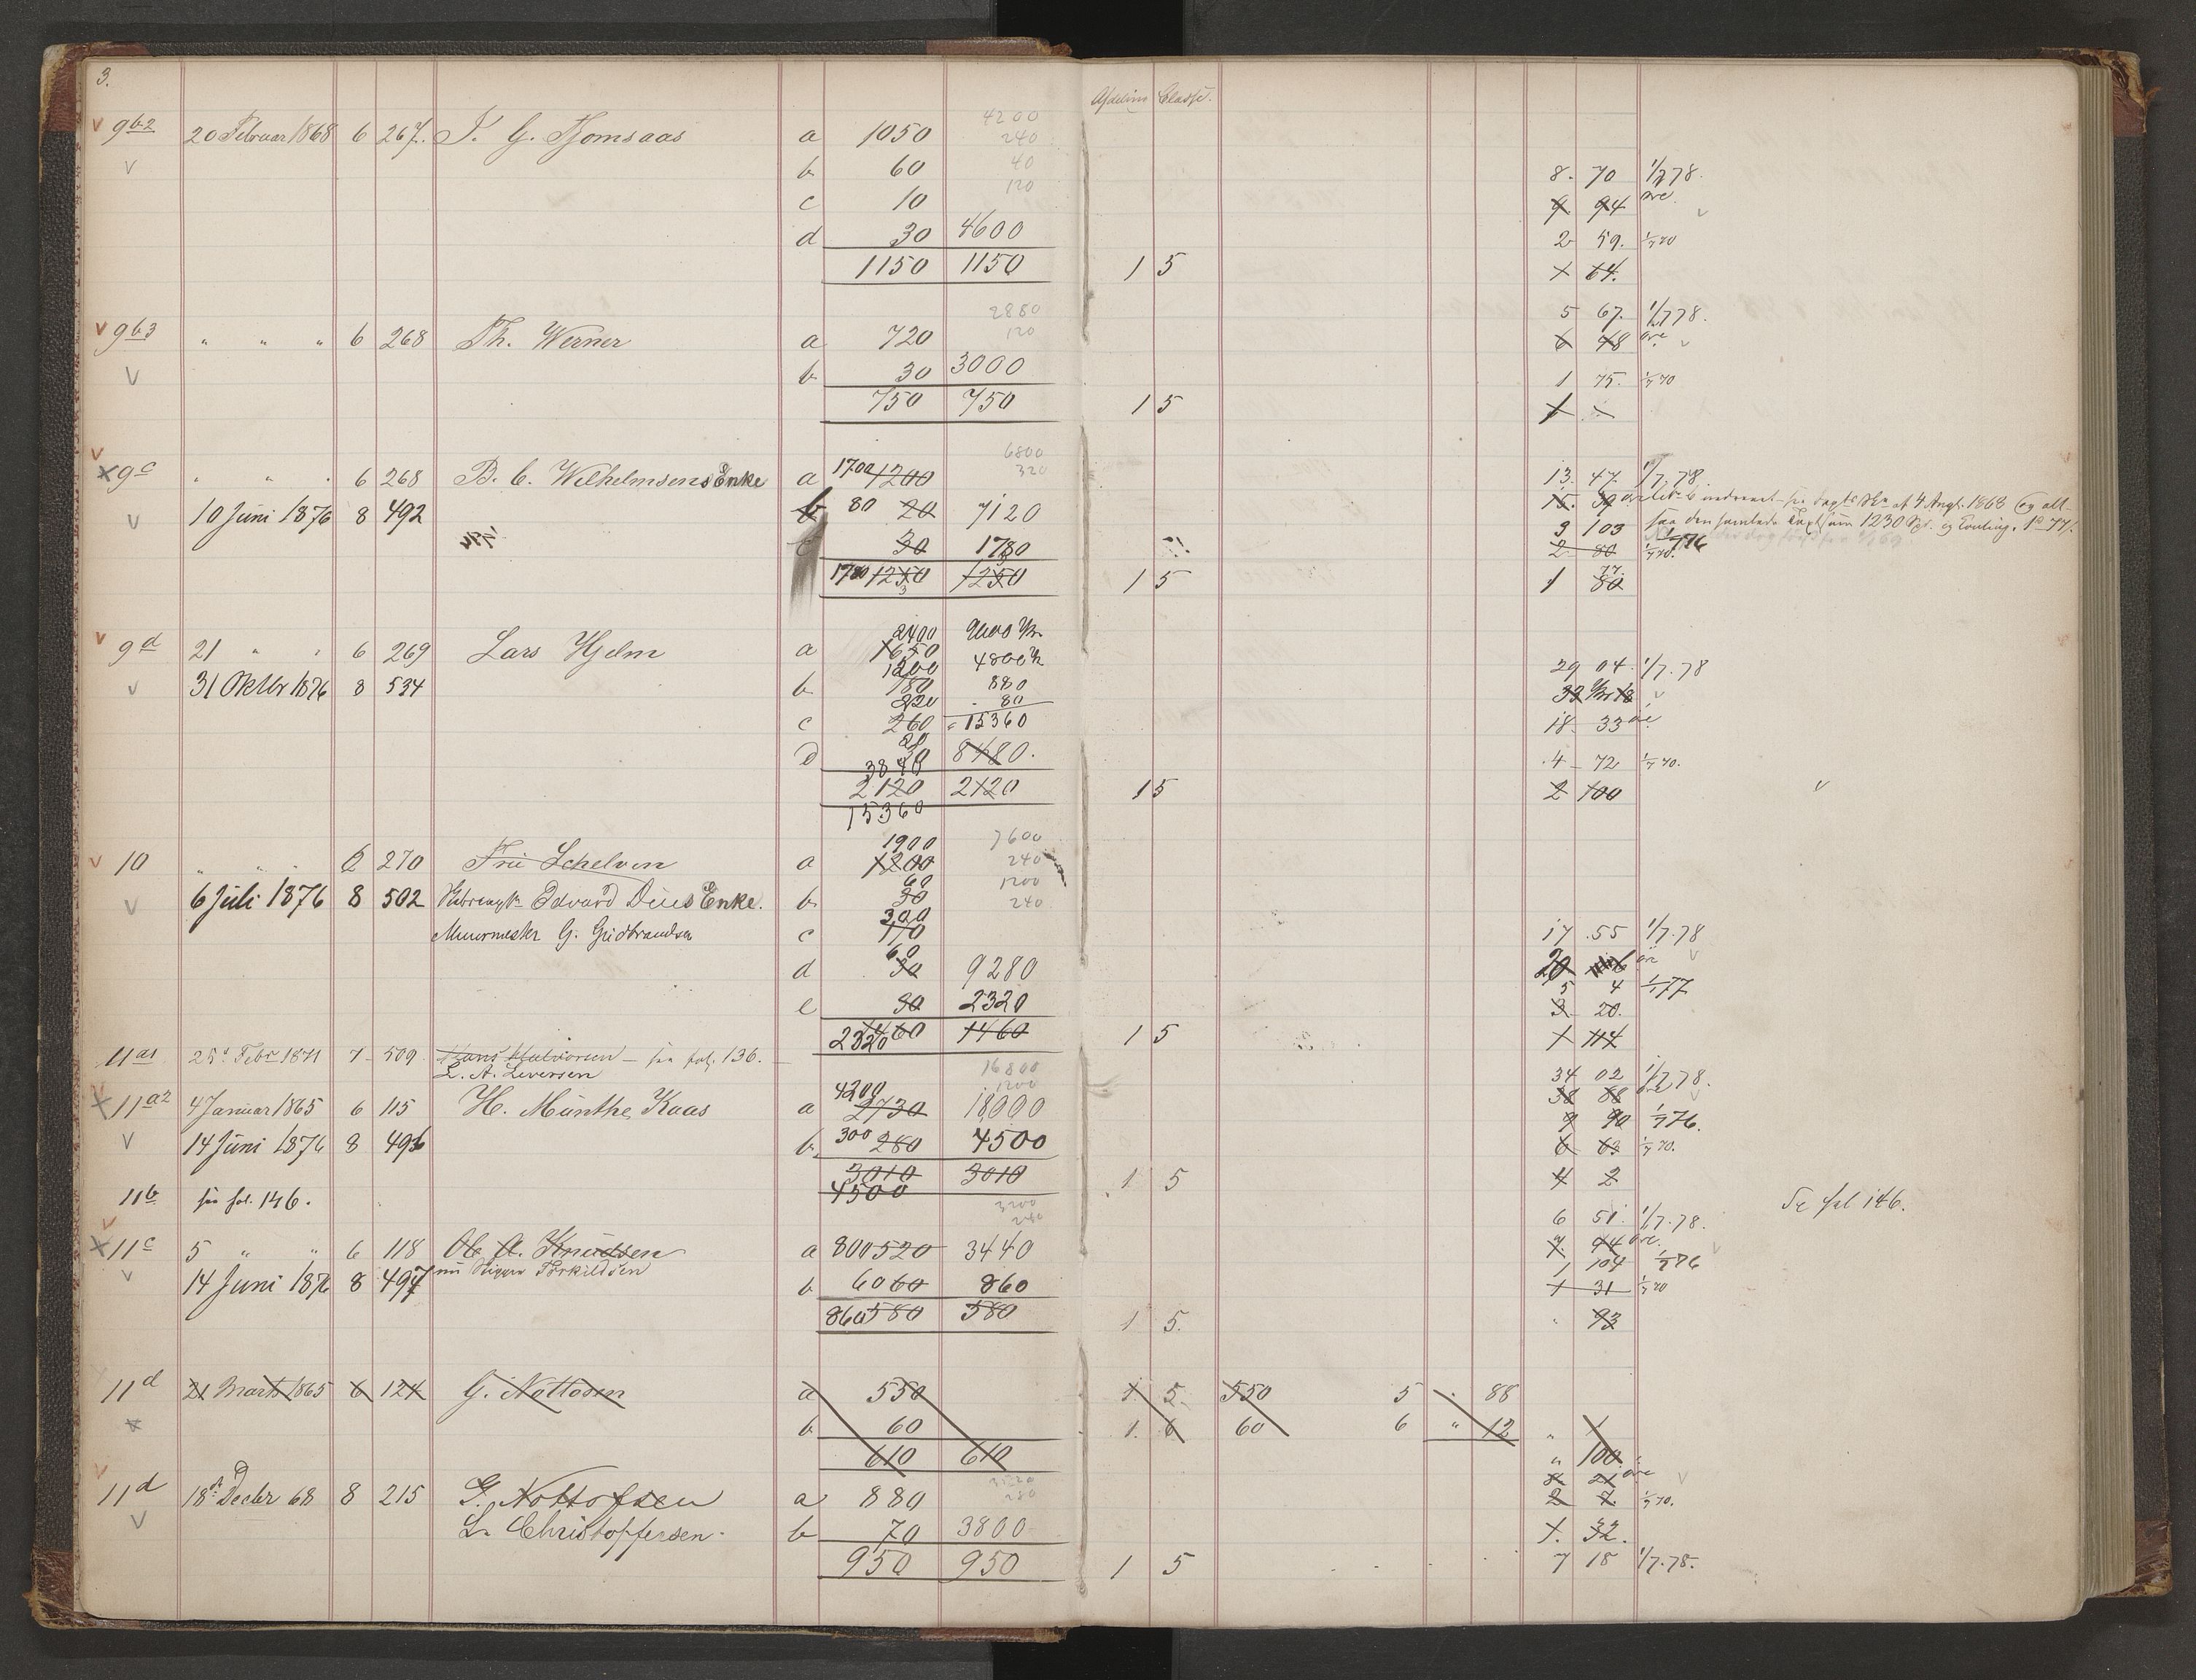 3.
Afdeling Classe.
9b2 20 Februar 1868 6 267. a 1050 4200
240
b 60 40 8. 70 1/7 78.
120
c 10 9 94 øre
d 30 4600 2 59. 1/7 70
1150 1150 1 5 1 64.
2880 5 67. 1/7 78.
9b3 " " " 6 268 Th. Werner a 720 120 6 48 øre
b 30 3000 1 75. 1/7 70
750 750 1 5 1 -
6800
9c " " " 6 268 B. C. Wilhelmsens Enke a 1700 1200 320 13. 47. 1/7 78
10 Juni 1876 8 492 b 80 20 7120 15. 39 4 Augt. 1868 og alt-
saa den samlede 1230 3 103
c 30 1780 2 80 1/7 70.
1780 1250 1250 1 5 1 80 77.
2400 9600
9d 21 " " 6 269 Lars Hjelm a 1650
1200 4800 29 04. 1/7. 78
31 Oktbr 1876 8 534 b 180 880
220 80
c 260 15360 18. 33 øre
20
d 30 8480. 4 72 1/7 70.
3840
2120 2120 1 5 2 100
15360
1900 7600
10 " " " 6 270 Fru Schelven a 1200 240
60 1200
6 Juli 1876 8 502 Edvard Dües Enke. b 30 240
300
Muurmester G. Gudbrandsen c 170 17 .55 1/7. 78
60
d 30 9280 20 øre
5 4 1/1 77
e 30 2320 3 20.
2320 1460 1460 1 5 1 114
11a1 25 Febr 1871 7 509 Hans Halvorsen – see fol. 136.
L. A. Leversen 16800 34 02 1/7 78.
11a2 4 Januar 1865 6 115 H. Munthe Kaas a 4200 2730 1200 18000 38 88 øre
9 90 1/7 76.
14 Juni 1876 8 496 b. 300 280 4500 6 63 1/7 70.
3010 3010 1 5 4 2
4500
11b see fol. 146. Se fol 146.
3200 6 51. 1/7. 78.
240
11c 5 " " 6 118 Ole A. Knudsen a 800 520 3440 7. 94 øre.
nu Torkildsen 1 104 1/7 76
14 Juni 1876 8 497 b 60 60 860 1 31 1/7 70
860 580 580 1 5. " 93
11d 21 Marts 1865 6 124 G. Nottosen a 550 1. 5. 550 5 . 88
b 60 1. 6 60 6 " 12 " 1
610 610 " 100
3520 2 21 øre
11d 18de Decbr 68 8 215 G. Nottofsen a 880 280 2 7. 1/7 70.
L. Christoffersen. b 70 3800 1. 32.
950 950 1 5 7 18 1/7. 78.